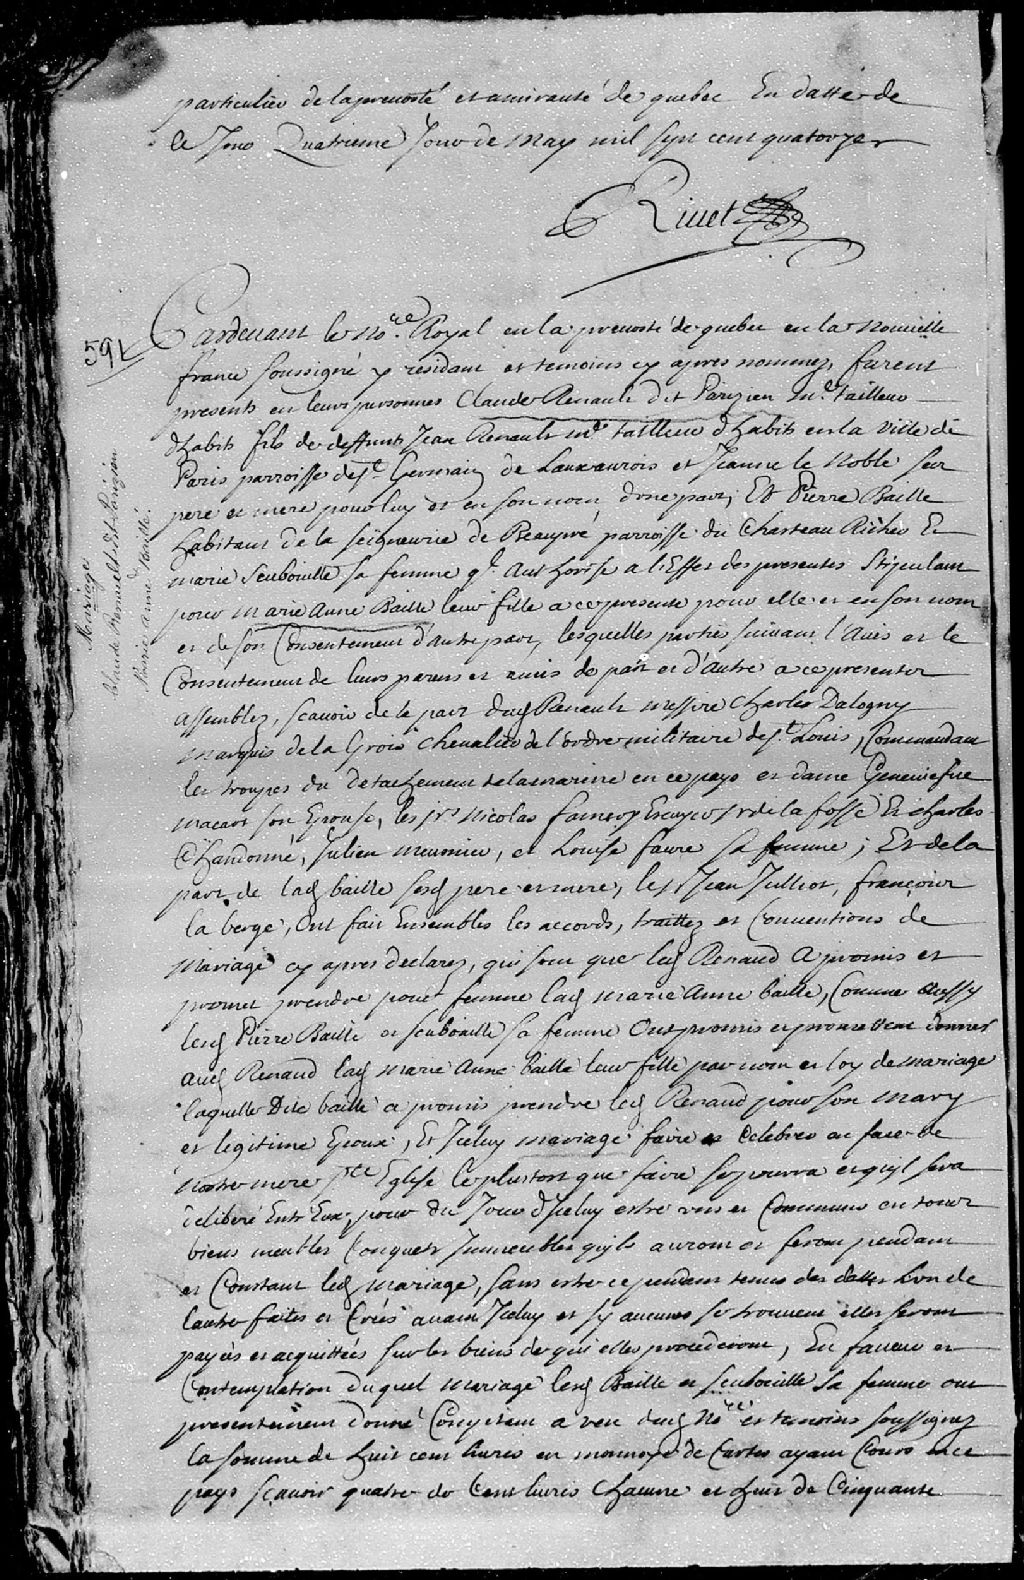 particulier de la prevosté et amirauté de quebec En datte de
le Jour Quatrieme Jour de May mil sept cent quatorze
Rivet
Pardevant le No.re Royal en la prevosté de quebec en la Nouvelle
france soussigné y residant et temoins cy apres nommez, furent
presents en leurs personnes Claude Renault dit Parizien M.e tailleur
d'habits fils de deffunts Jean Renault m.e tailleur d'habits en la Ville de
Paris parroisse de S.t Germain de Lauxaurois et Jeanne le Noble ses
pere et mere pour luy et en son nom d'une part, Et Pierre Baille
habitant de la seigneurie de Beaupré parroisse du Chasteau Richer Et
marie seuboüille sa femme q.l Authorise a l'Effet des presentes Stipulant
pour Marie Anne Baille leur fille a ce presente pour elle et en son nom
et de son Consentement d'autre part, lesquelles parties suivant l'Avis et le
Consentement de leurs parens et amis de part et d'autre a ce presenter
assemblez, scavoir de la part dud Renault messire Charles Dalogny
Marquis de la Grois Chevalier de l'ordre militaire de S.t Louis, Commandant
les troupes du detachement de la marine en ce pays et dame Geneviefve
macart son Epouse, les s.rs Nicolas Escuyer s.r de la fosse Et charles
Chandonné, Julien meunier, et Louise faure sa femme; Et de la
part de lad baille sesd pere et mere, les s.rs Jean Julliot, françois
la berge, Ont fait Ensembles les accords, traittez et Conventions de
Mariage cy apres declarez, qui sont que led Renaud A promis et
promet prendre pour femme lad Marie Anne baille, Comme aussy
lesd Pierre Baille et seuboüille sa femme Ont promis et promettent donner
aud Renaud lad Marie Anne baille leur fille par nom et loy de mariage
laquelle Dite baille a promis prendre led Renaud pour son Mary
et legitime Epoux, Et Iceluy mariage faire et Celebrer en face de
nostre mere s.te Eglise le plustost que faire se pourra et qu'il sera
deliberé Entr'Eux, pour du Jour d'Iceluy estre uns et Communs en tous
biens meubles Conquets Immeubles qu'ils auront et feront pendant
et Constant led Mariage, sans estre cependant tenus des dettes L'un de
l'autre faites et Créés avant Iceluy et sy aucunes se trouvent elles seront
payées et acquittées sur les biens de qui elles procederont, En faveur et
Contemplation duquel Mariage lesd Baille et seuboüille sa femme ont
presentement donné Comptant a veu dud No.re et temoins soussignez
la somme de huit cent livres en monnoye de Cartes ayant Cours en ce
pays scavoir quatre de Cent livres Chacune et huit de Cinquante
59
Mariage
Claude Renault dit Parizien
Marie anne Baillé.